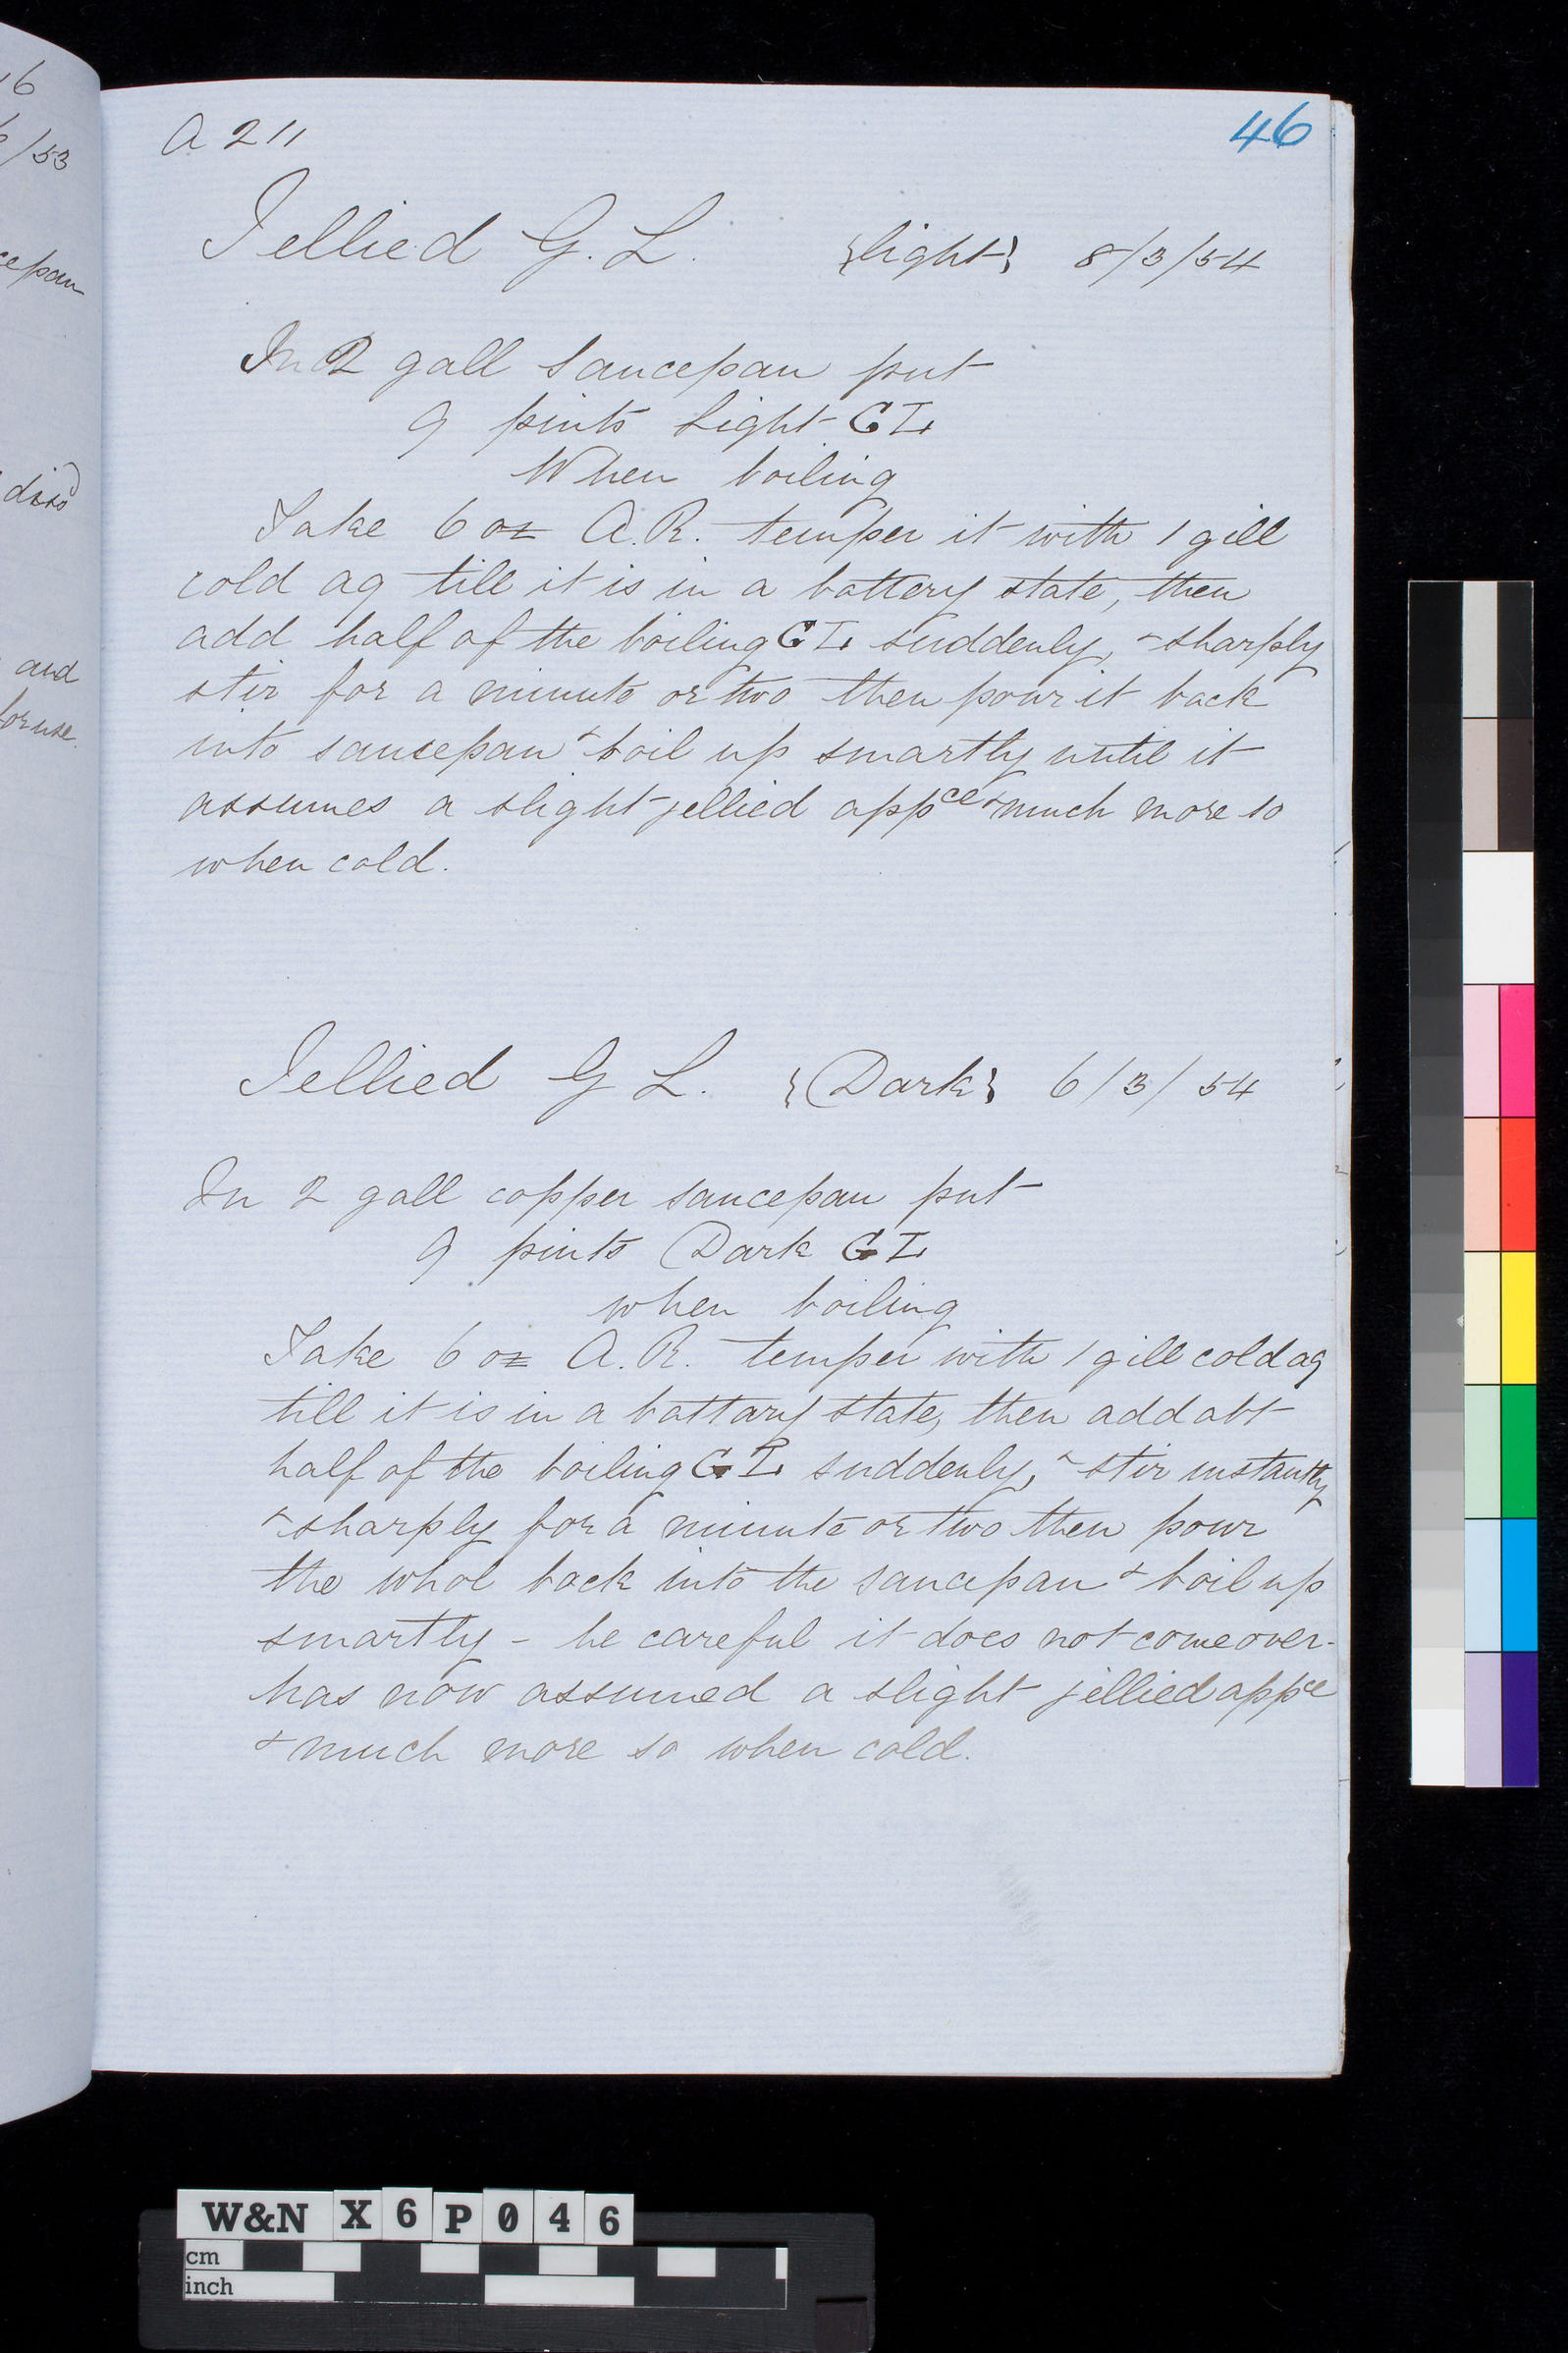 16
/53
cepan
diss^d
and
for use.
A 211
46
Jellied G. L. {light} 8/3/54
In 2 gall saucepan put
9 pints Light GL
When boiling
Take 6 oz A.R. temper it with 1 gill
cold aq till it is in a battery state, then
add half of the boiling GL suddenly, & sharply
stir for a minute or two then pour it back
into saucepan & boil up smartly until it
assumes a slight jellied app^ce & much more so
when cold.
Jellied G L. {Dark} 6/3/54
In 2 gall copper saucepan put
9 pints Dark GL
when boiling
Take 6 oz A.R. temper with 1 gill cold aq
till it is in a battary state, then add abt
half of the boiling GL suddenly, & stir instantly
& sharply for a minute or two then pour
the whol back into the saucepan & boil up
smartly - be careful it does not come over -
has now assumed a slight jellied app^ce
& much more so when cold.
W&N X6P046
cm
inch